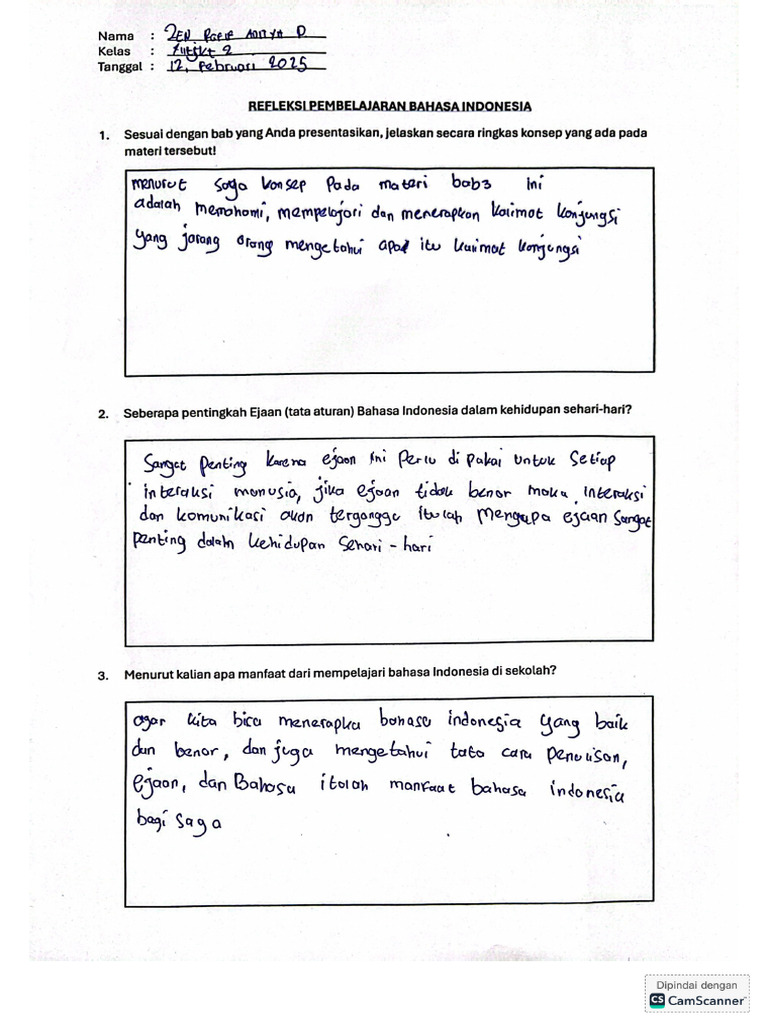 Nama :
Kelas :
Tanggal : 12, Februari 2025
REFLEKSI PEMBELAJARAN BAHASA INDONESIA
1. Sesuai dengan bab yang Anda presentasikan, jelaskan secara ringkas konsep yang ada pada
materi tersebut!
menurut saya konsep Pada materi bab3 ini
adalah memahami, mempelajari dan menerapkan kalimat konjungsi
yang jarang orang mengetahui apa itu kalimat konjungsi
2. Seberapa pentingkah Ejaan (tata aturan) Bahasa Indonesia dalam kehidupan sehari-hari?
Sangat Penting karena ejaan ini Perlu di pakai untuk Setiap
interaksi manusia, jika ejaan tidak benar maka interaksi
dan komunikasi akan terganggu itulah mengapa ejaan Sangat
Penting dalam kehidupan Sehari-hari
3. Menurut kalian apa manfaat dari mempelajari bahasa Indonesia di sekolah?
agar kita bisa menerapka bahasa indonesia yang baik
dan benar, dan juga mengetahui tata cara Penulisan,
ejaan, dan Bahasa itulah manfaat bahasa indonesia
bagi saya
Dipindai dengan
CS CamScanner